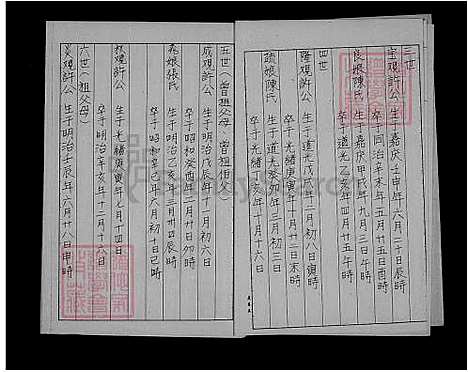 三世
宝規許公 生于嘉庆壬申年六月二十日辰時
卒于同治辛未年五月廿五日酉時
良娘陳氏 生于嘉庆甲戌年九月三日午時
卒于道光乙亥年四月廿五午時
四世
隆規許公 生于道光戊戌年十月初八日寅時
卒于光緒庚寅年十月二十日未時
蹟娘陳氏 生于道光癸卯年三月初三日
卒于光緒丁亥年十月十六日
五世(曾祖父母 曾祖伯父)
成規許公 生于明治戊辰年十一月初六日
卒于昭和癸酉年二月廿日卯時
亮娘張氏 生于明治乙亥年三月廿日辰時
卒于昭和辛巳年六月初十日巳時
救規許公 生于光緒庚寅年七月十四日
卒于明治辛亥年十二月十六日
六世(祖父母)
炎規許公 生于明治壬辰年六月廿八日申時